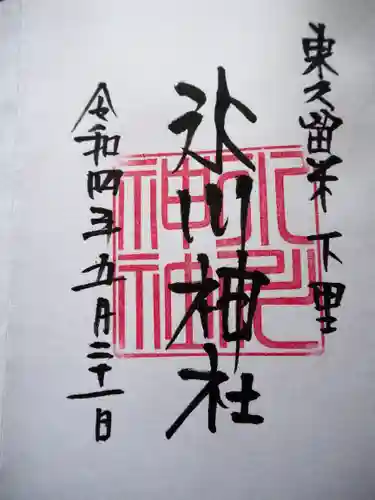 東久留米 下里
氷川神社
氷川神社
令和四年五月二十一日